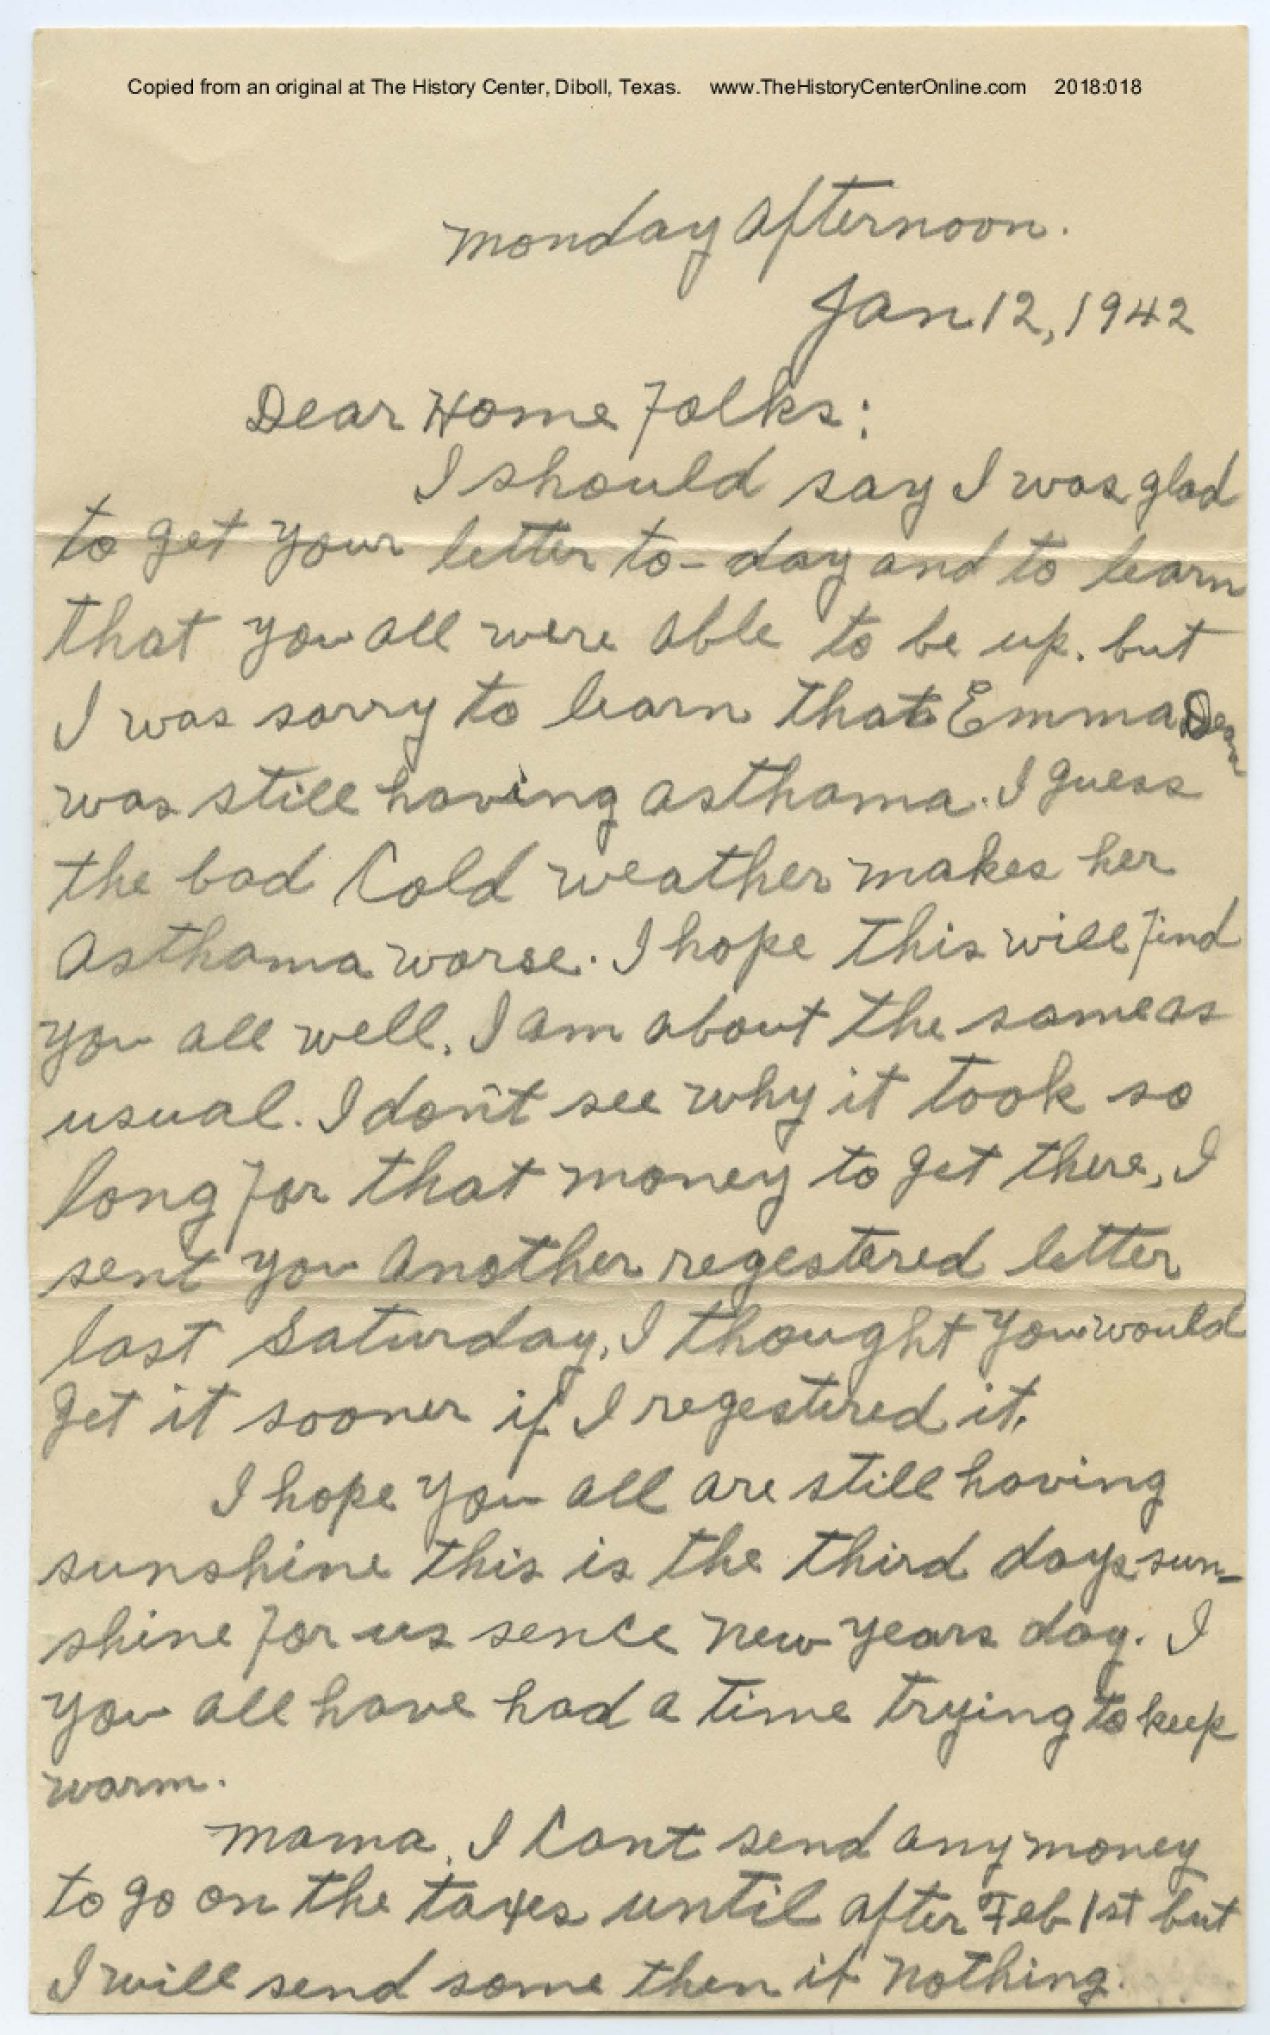 Copied from an original at The History Center, Diboll, Texas. www.TheHistoryCenterOnline.com 2018:018
Monday afternoon.
Jan 12, 1942
Dear Home Folks:
I should say I was glad
to get your letter to-day and to learn
that you all were able to be up. but
I was sorry to learn that Emma Dean
was still having asthama. I guess
the bad Cold weather makes her
asthama worse. I hope this will find
you all well. I am about the same as
usual. I don't see why it took so
long for that money to get there, I
sent you another regestered letter
last Saturday, I thought you would
get it sooner if I regestered it.
I hope you all are still having
sunshine this is the third days sun-
shine for us sence New years day. I
you all have had a time trying to keep
warm.
Mama, I Cant send any money
to go on the taxes until after Feb 1st but
I will send some then if nothing